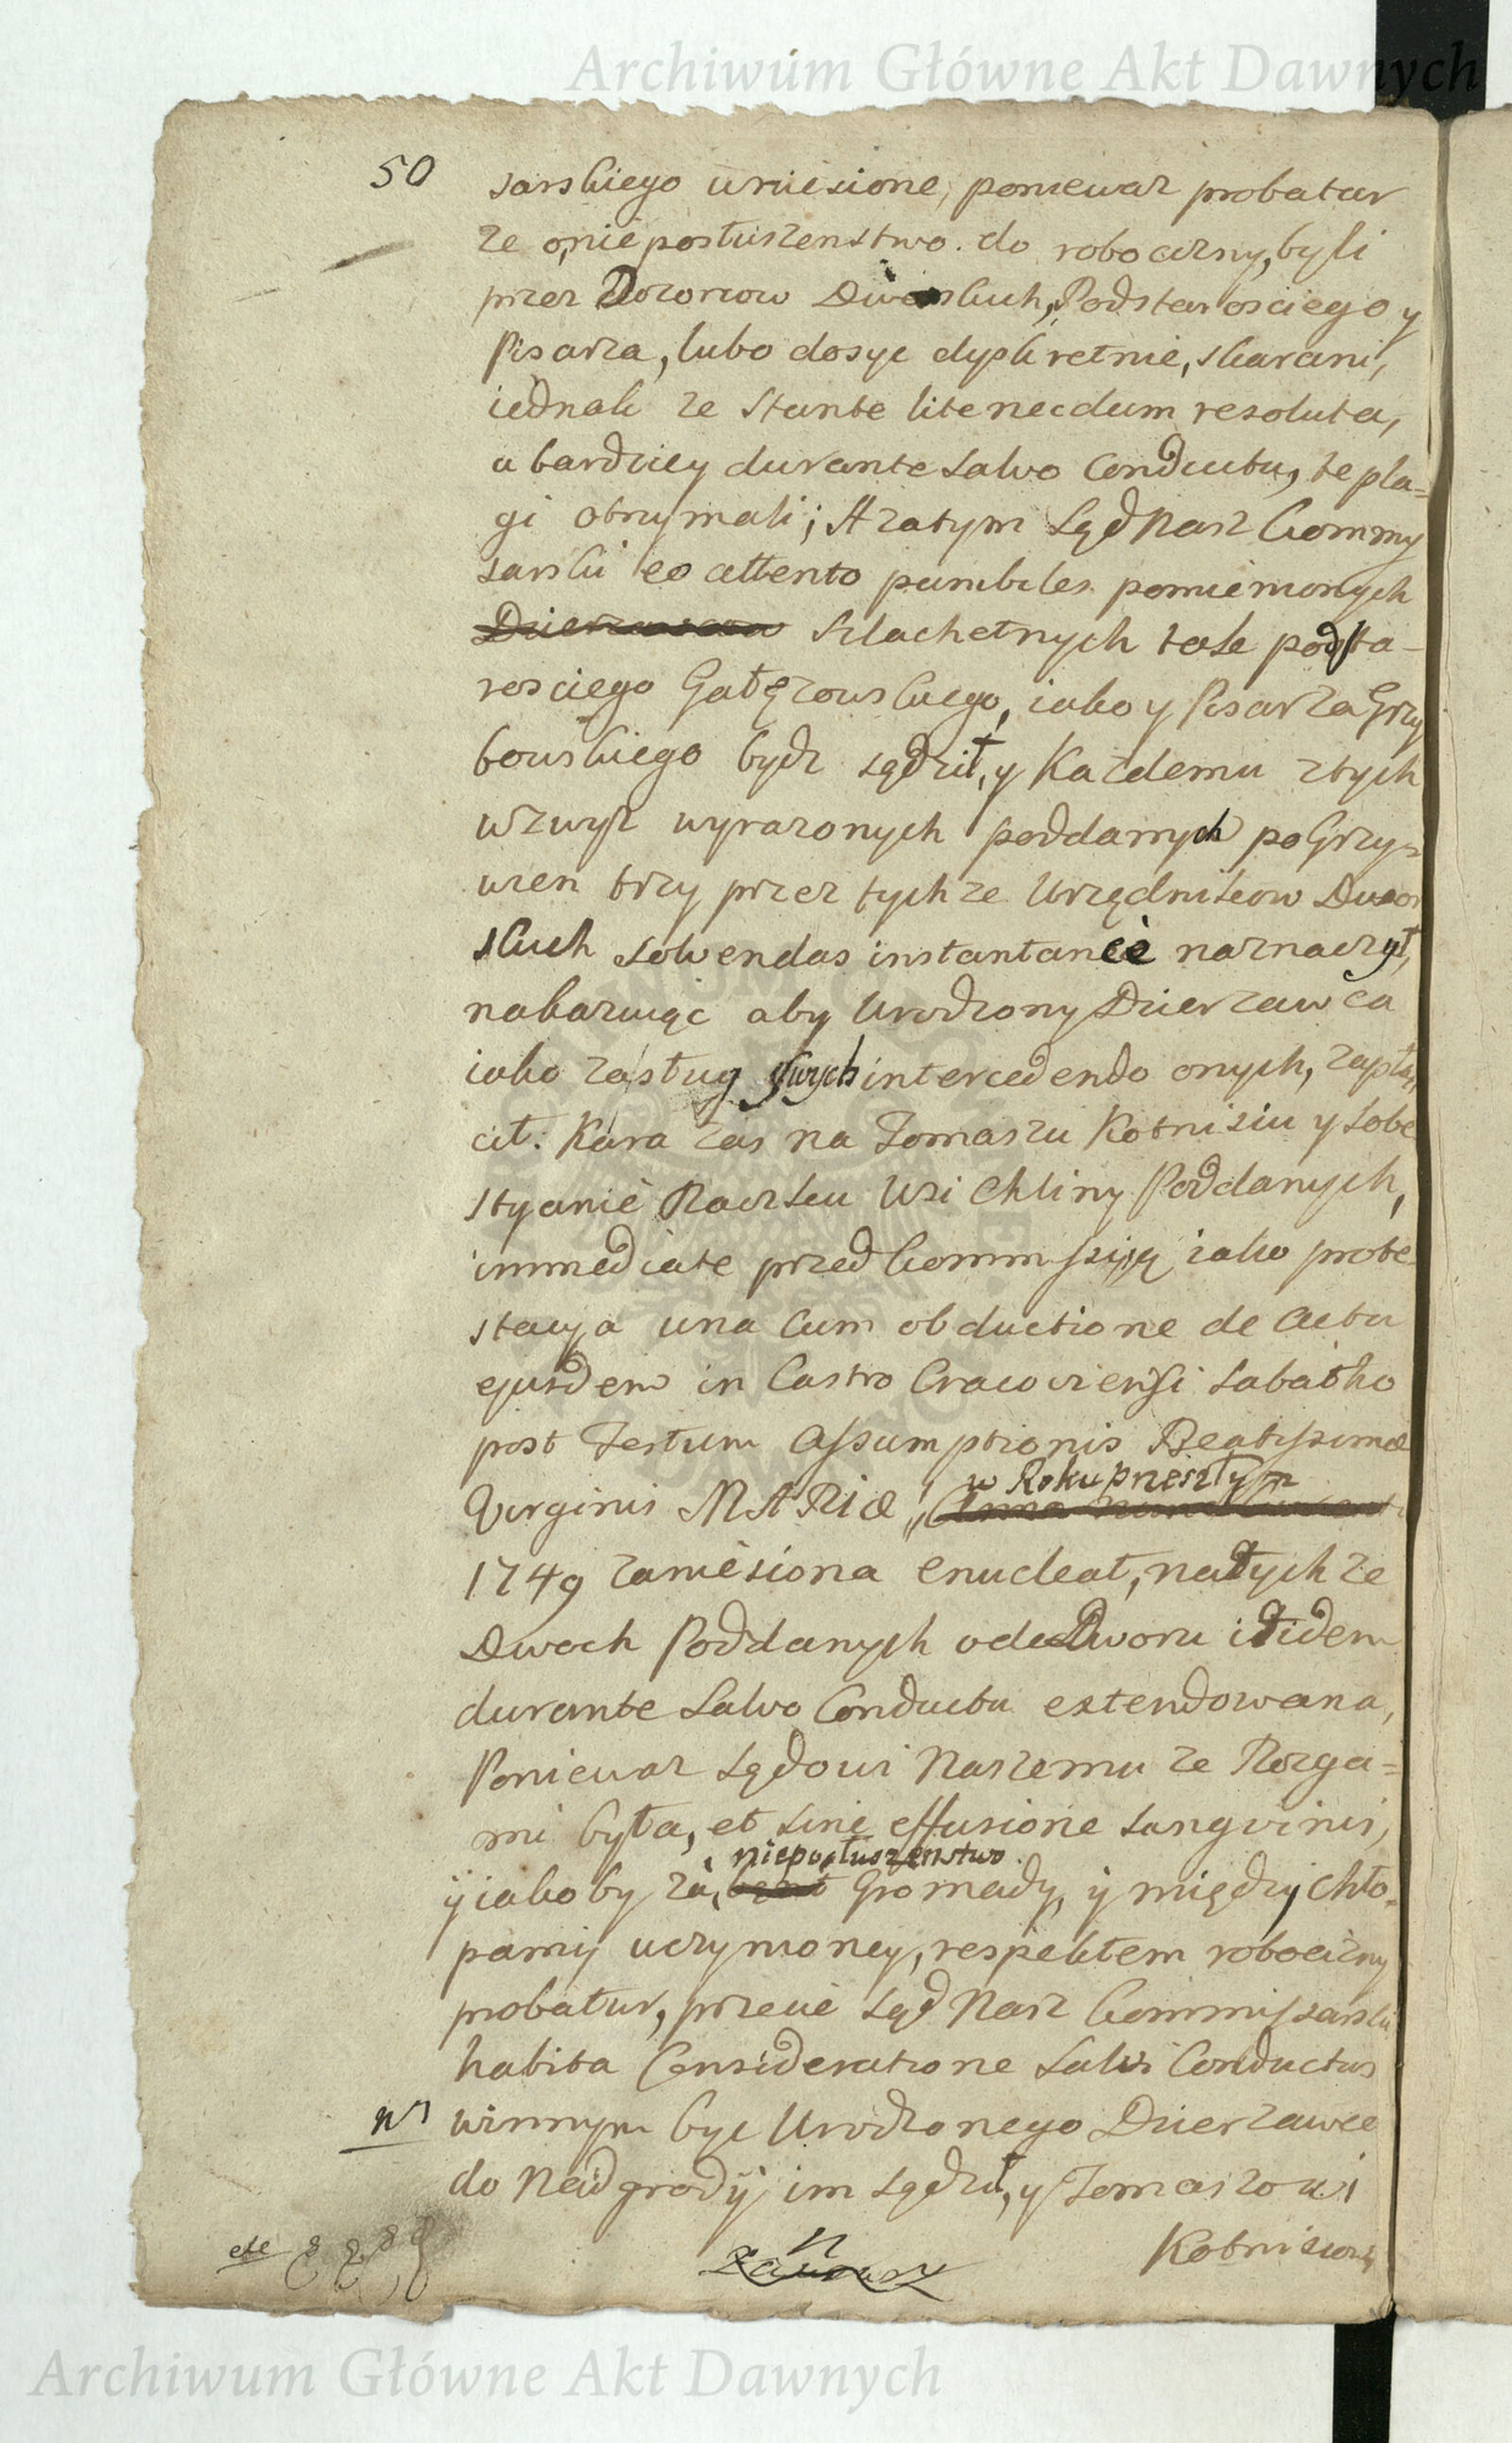 Archiwum Główne Akt Dawnych
50
sarskiego wniesione, poniewaz probatur
ze o nieposłuszenstwo do robocizny, byli
przez Dozorcow Dworskich, Podstarosciego y
Pisarza, lubo dosyc dyskretnie, skarani,
iednak ze Stante lite necdum resoluta,
a bardziey durante Salvo Conductu, te pla=
gi otrzymali; A zatym Sąd Nasz Commy
sarski eo attento punibiles pomienionych
Szlachetnych tak podsta-
rosciego Gałęzowskiego, iako y Pisarza Grzy
bowskiego bydz sądził, y Kazdemu ztych
wzwyż wyrazonych poddanych po Grzy=
wien trzy przez tychze Urzędnikow Dwor
skich solvendas instantanee naznaczył,
nakazuiąc aby Urodzony Dzierzawca
iako zasług swych intercedendo onych, zapła,
cił. Kara zas na Tomaszu Kotnisiu y Sobe
styanie Raczku Wsi Chliny Poddanych,
immediate przed Commissyią iako prote
stacya una cum obductione de actu
ejusdem in Castro Cracoviensi Sabatho
post Festum Assumptionis Beatissimæ
w Roku przeszłym
Virginis MARIÆ
1749 zaniesiona enucleat, na tychze
Dwoch Poddanych ode Dworu itidem
durante Salvo Conductu extendowana,
Poniewaz Sądowi Naszemu ze Rozga=
mi była, et sine effusione sangvinis,
nieposłuszenstwo
y iakoby za Gromady, y między chło=
pamy uczynioney, respektem robocizny
probatur, przecie Sąd Nasz Commissarski
habita Consideratione Salvi Conductus
winnym byc Urodzonego Dzierzawce
do Nadgrody im sądził, y Tomaszowi
Kotnisiowi
etc
Archiwum Główne Akt Dawnych